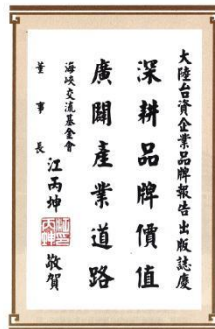 大陸台資企業品牌報告出版誌慶
深耕品牌價值
廣闢產業道路
海峽交流基金會
董事長
江丙坤
敬賀